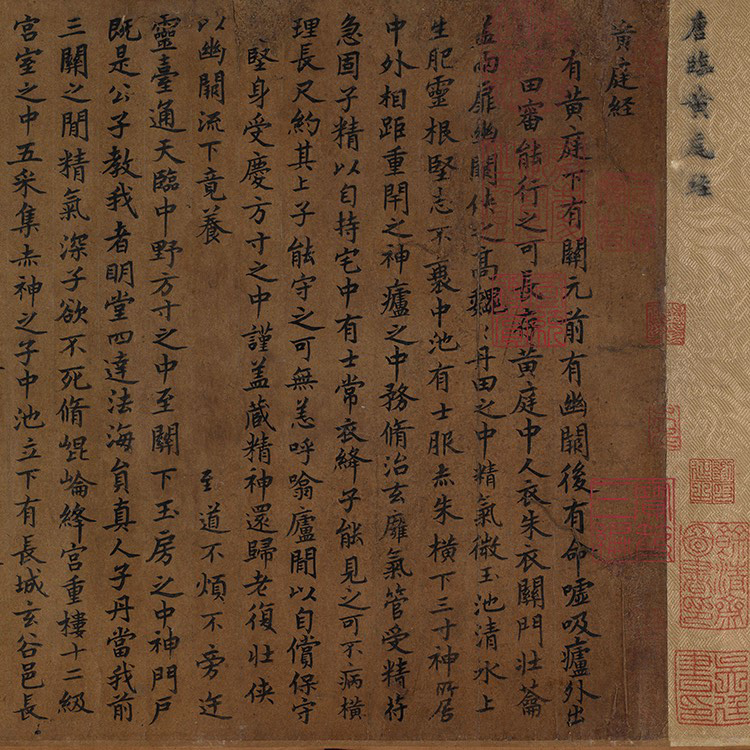 唐臨黃庭經
黃庭経
有黃庭下有關元前有幽闕後有命噓吸廬外出
田審能行之可長存黃庭中人衣朱衣關門壯籥
蓋兩扉幽闕俠之高巍〻丹田之中精氣微玉池清水上
生肥靈根堅志不衰中池有士服赤朱橫下三寸神所居
中外相距重閇之神廬之中務脩治玄廱氣管受精苻
急固子精以自持宅中有士常衣絳子能見之可不病橫
理長尺約其上子能守之可無恙呼噏廬間以自償保守
堅身受慶方寸之中謹盖藏精神還歸老復壯俠
以幽闕流下竟養　至道不煩不旁迕
靈臺通天臨中野方寸之中至關下玉房之中神門戶
既是公子教我者明堂四達法海員真人子丹當我前
三關之間精氣深子欲不死脩崐崘絳宮重樓十二級
宮室之中五采集赤神之子中池立下有長城玄谷邑長